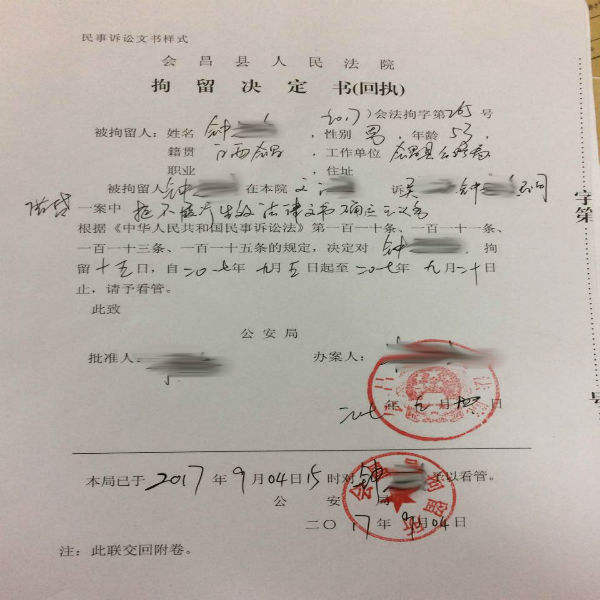 民事诉讼文书样式
会昌县人民法院
拘留决定书(回执)
(2017)会法拘字第265号
被拘留人:姓名 钟 ,性别 男,年龄 53,
籍贯 江西会昌,工作单位 会昌县公路局
职业 ,住址
被拘留人钟 在本院 诉 钟
借贷一案中 拒不履行生效法律文书确定之义务
根据《中华人民共和国民事诉讼法》第一百一十条、一百一十一条、
一百一十三条、一百一十五条的规定,决定对 钟 拘
留十五日,自二〇一七年九月五日起至二〇一七年九月二十日
止,请予看管。
此致
公安局
批准人: 办案人:
二〇一七年九月四日
本局已于2017年9月04日15时对钟 予以看管。
公安局
二〇17年9月04日
注:此联交回附卷。
字第
号